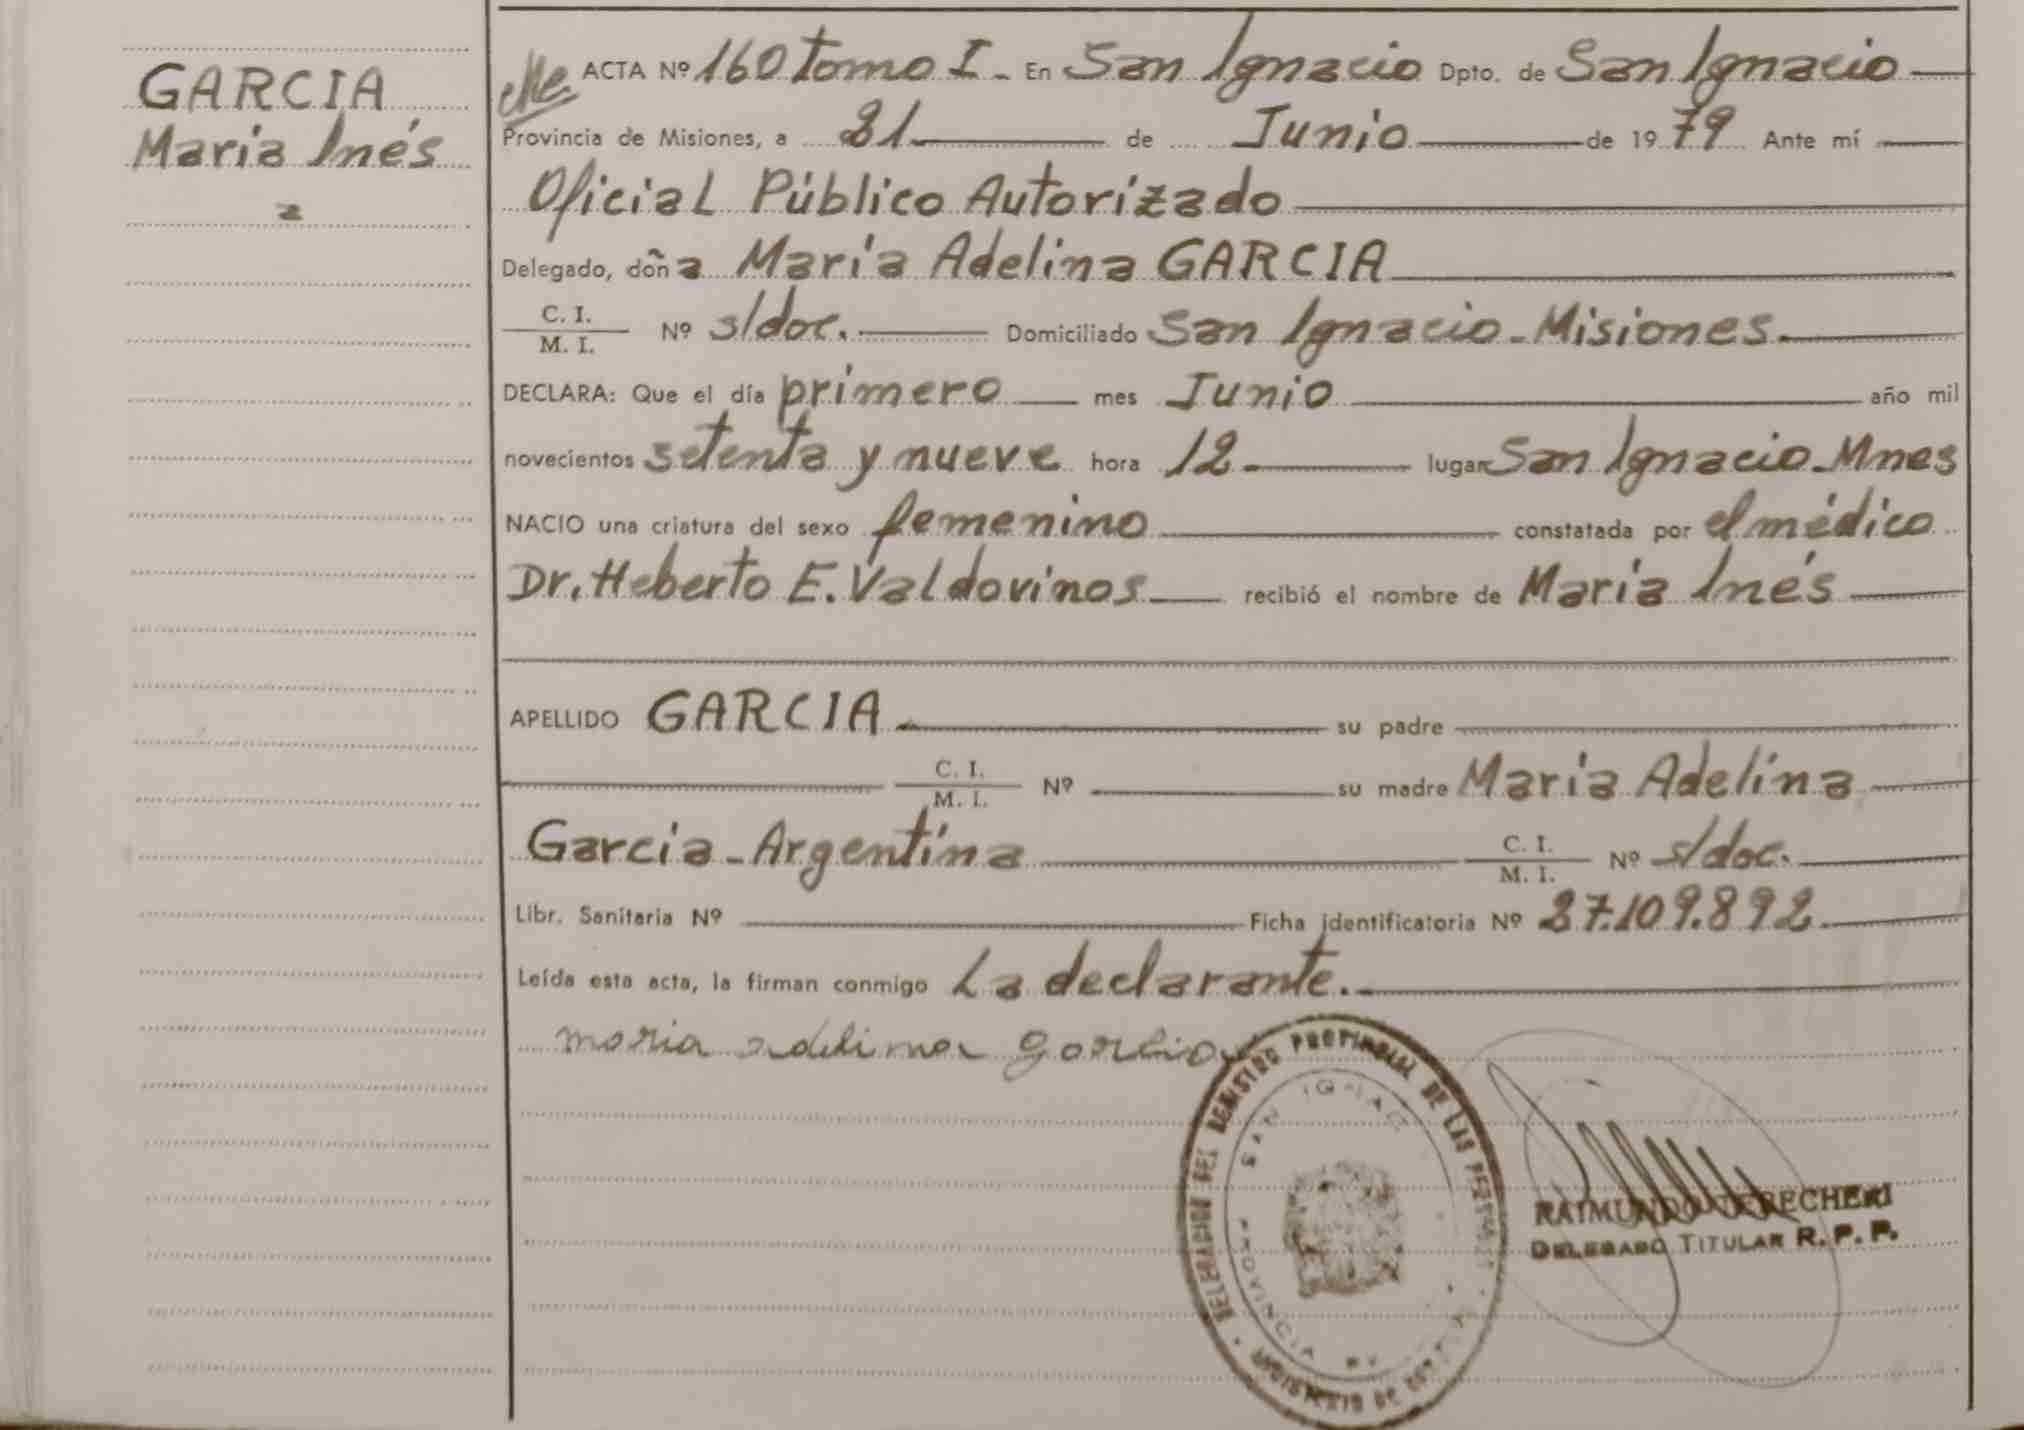 GARCIA
María Inés
ACTA Nº 160 Tomo I. En San Ignacio Dpto. de San Ignacio
Provincia de Misiones, a 21 de Junio de 1979 Ante mí
Oficial Público Autorizado
Delegado, doña María Adelina GARCIA
C. I.
M. I. Nº s/doc. Domiciliado San Ignacio - Misiones.
DECLARA: Que el día primero mes Junio año mil
novecientos setenta y nueve hora 12 lugar San Ignacio - Mnes
NACIO una criatura del sexo femenino constatada por el médico
Dr. Heberto E. Valdovinos recibió el nombre de María Inés
APELLIDO GARCIA su padre
C. I.
M. I. Nº su madre María Adelina
García - Argentina C. I.
M. I. Nº s/doc.
Libr. Sanitaria Nº Ficha identificatoria Nº 27.109.892
Leída esta acta, la firman conmigo La declarante.
maria adelina garcia
DELEGACION DEL REGISTRO PROVINCIAL DE LAS PERSONAS
SAN IGNACIO
PROVINCIA
MINISTERIO DE
RAIMUNDO DERECHERI
DELEGADO TITULAR R. P. P.